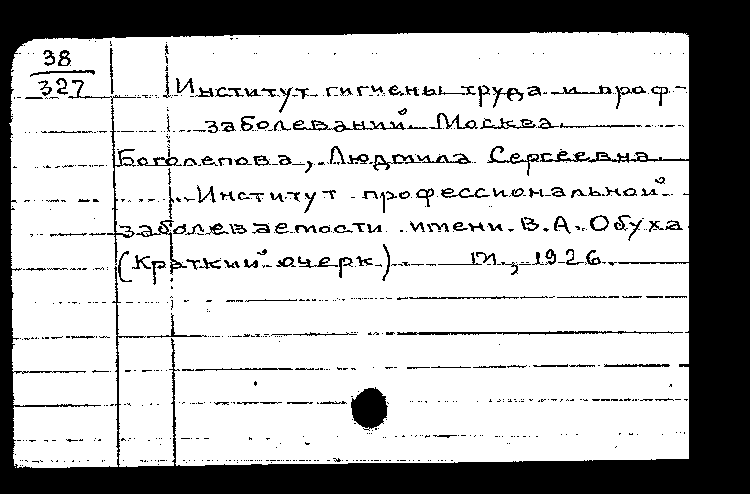 38
327
Институт гигиены труда и проф-
заболеваний. Москва.
Боголепова, Людмила Сергеевна.
Институт профессиональной
заболеваемости имени В.А. Обуха
(Краткий очерк). М., 1926.